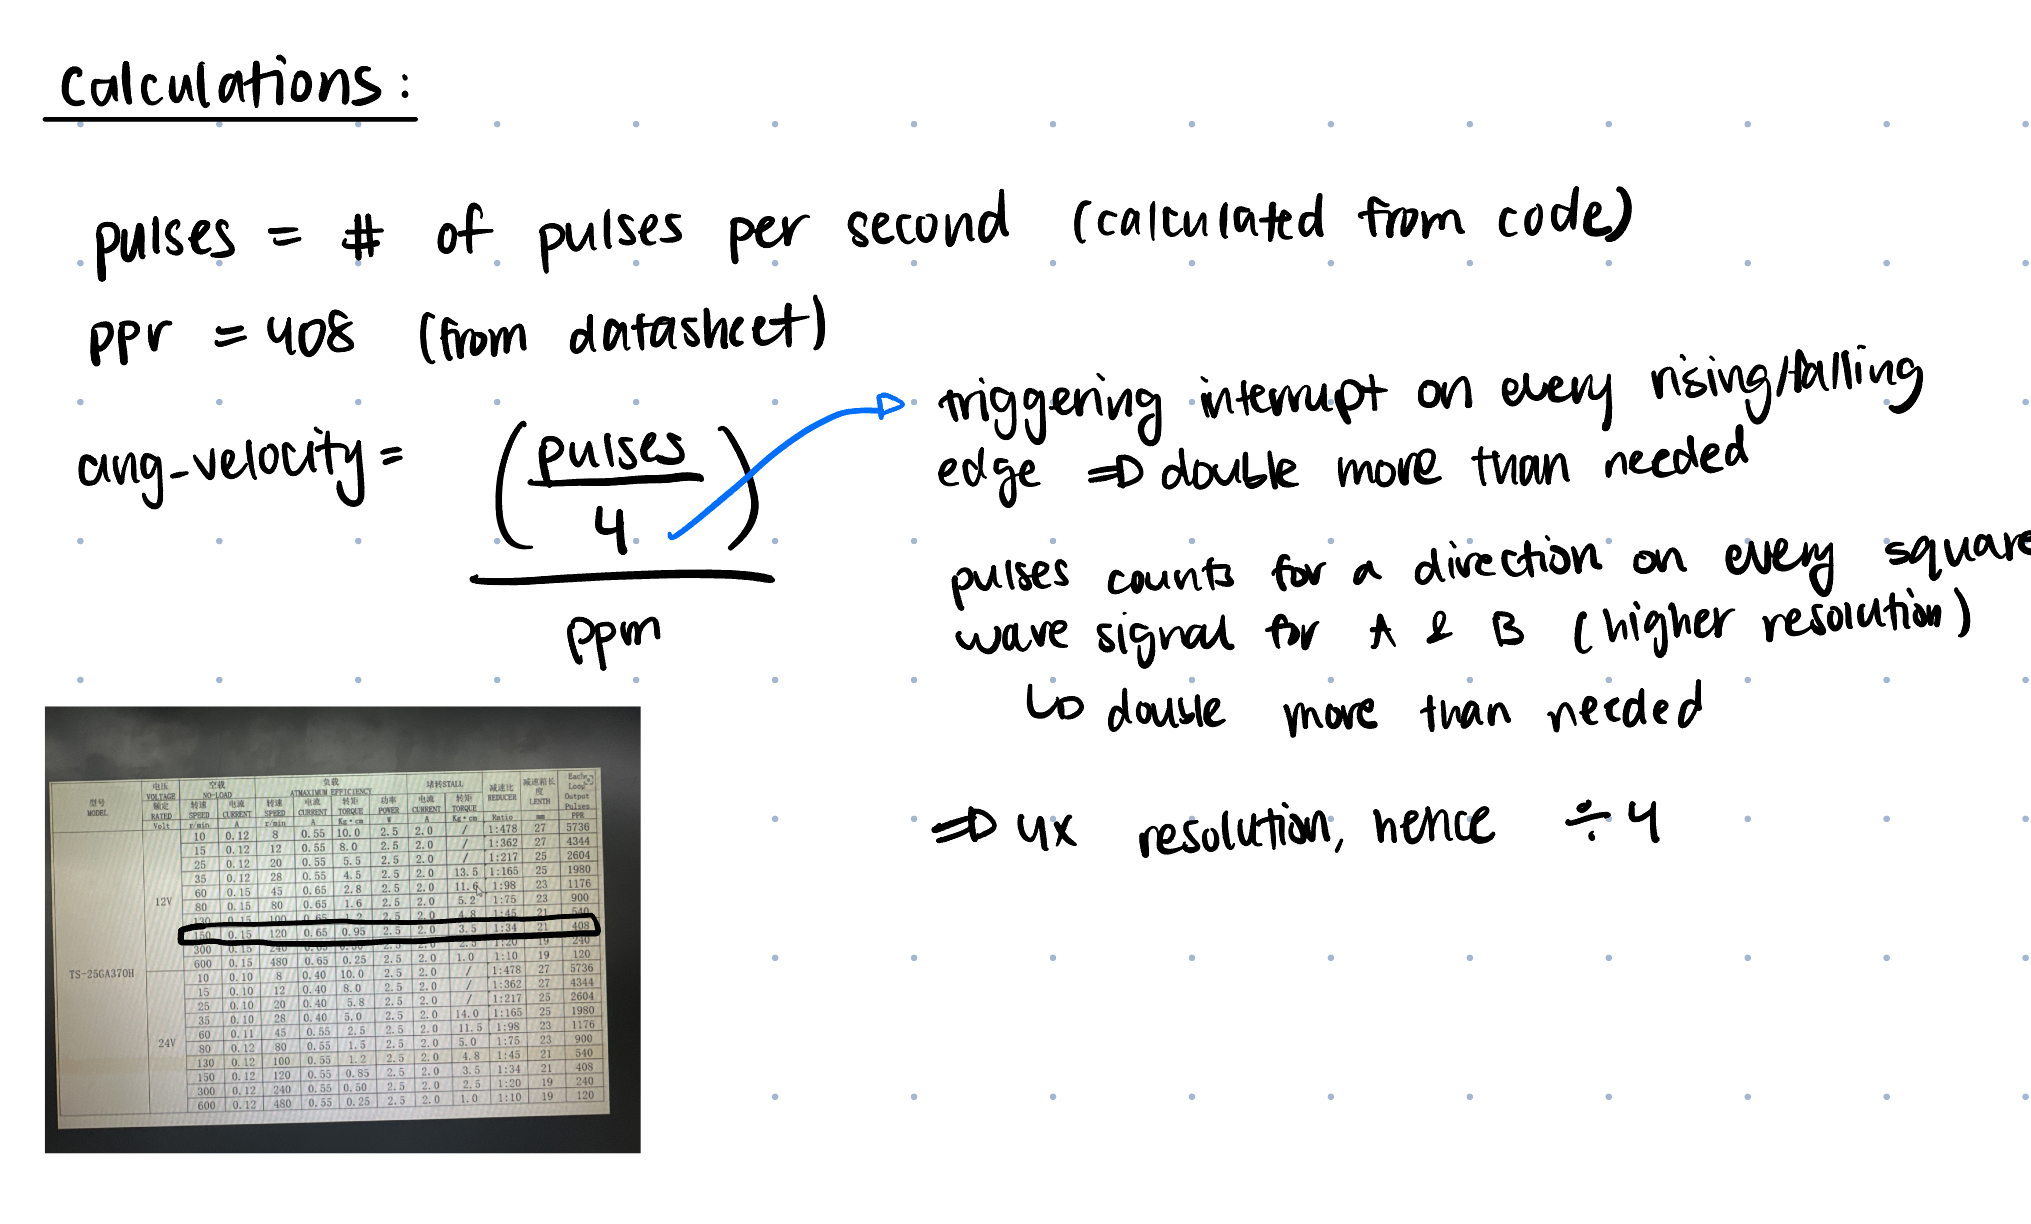 Calculations:
pulses = # of pulses per second (calculated from code)
ppr = 408 (from datasheet)
ang-velocity = (pulses / 4) / ppm
triggering interrupt on every rising/falling
edge ⇒ double more than needed
pulses counts for a direction on every square
wave signal for A & B (higher resolution)
↳ double more than needed
⇒ 4x resolution, hence ÷ 4
型号 MODEL
电压 VOLTAGE 额定 RATED Volt
空载 NO-LOAD
负载 ATMAXIMUM EFFICIENCY
堵转STALL
减速比 REDUCER Ratio
减速箱长度 LENTH mm
Each Loop Output Pulses PPR
转速 SPEED r/min
电流 CURRENT A
转速 SPEED r/min
电流 CURRENT A
转矩 TORQUE Kg·cm
功率 POWER W
电流 CURRENT A
转矩 TORQUE Kg·cm
TS-25GA370H
12V
10 0.12 8 0.55 10.0 2.5 2.0 / 1:478 27 5736
15 0.12 12 0.55 8.0 2.5 2.0 / 1:362 27 4344
25 0.12 20 0.55 5.5 2.5 2.0 / 1:217 25 2604
35 0.12 28 0.55 4.5 2.5 2.0 13.5 1:165 25 1980
60 0.15 45 0.65 2.8 2.5 2.0 11.6 1:98 23 1176
80 0.15 80 0.65 1.6 2.5 2.0 5.2 1:75 23 900
130 0.15 100 0.65 1.2 2.5 2.0 4.8 1:45 21 540
150 0.15 120 0.65 0.95 2.5 2.0 3.5 1:34 21 408
300 0.15 240 0.65 2.5 2.0 2.5 1:20 19 240
600 0.15 480 0.65 0.25 2.5 2.0 1.0 1:10 19 120
24V
10 0.10 8 0.40 10.0 2.5 2.0 / 1:478 27 5736
15 0.10 12 0.40 8.0 2.5 2.0 / 1:362 27 4344
25 0.10 20 0.40 5.8 2.5 2.0 / 1:217 25 2604
35 0.10 28 0.40 5.0 2.5 2.0 14.0 1:165 25 1980
60 0.11 45 0.55 2.5 2.5 2.0 11.5 1:98 23 1176
80 0.12 80 0.55 1.5 2.5 2.0 5.0 1:75 23 900
130 0.12 100 0.55 1.2 2.5 2.0 4.8 1:45 21 540
150 0.12 120 0.55 0.85 2.5 2.0 3.5 1:34 21 408
300 0.12 240 0.55 0.50 2.5 2.0 2.5 1:20 19 240
600 0.12 480 0.55 0.25 2.5 2.0 1.0 1:10 19 120